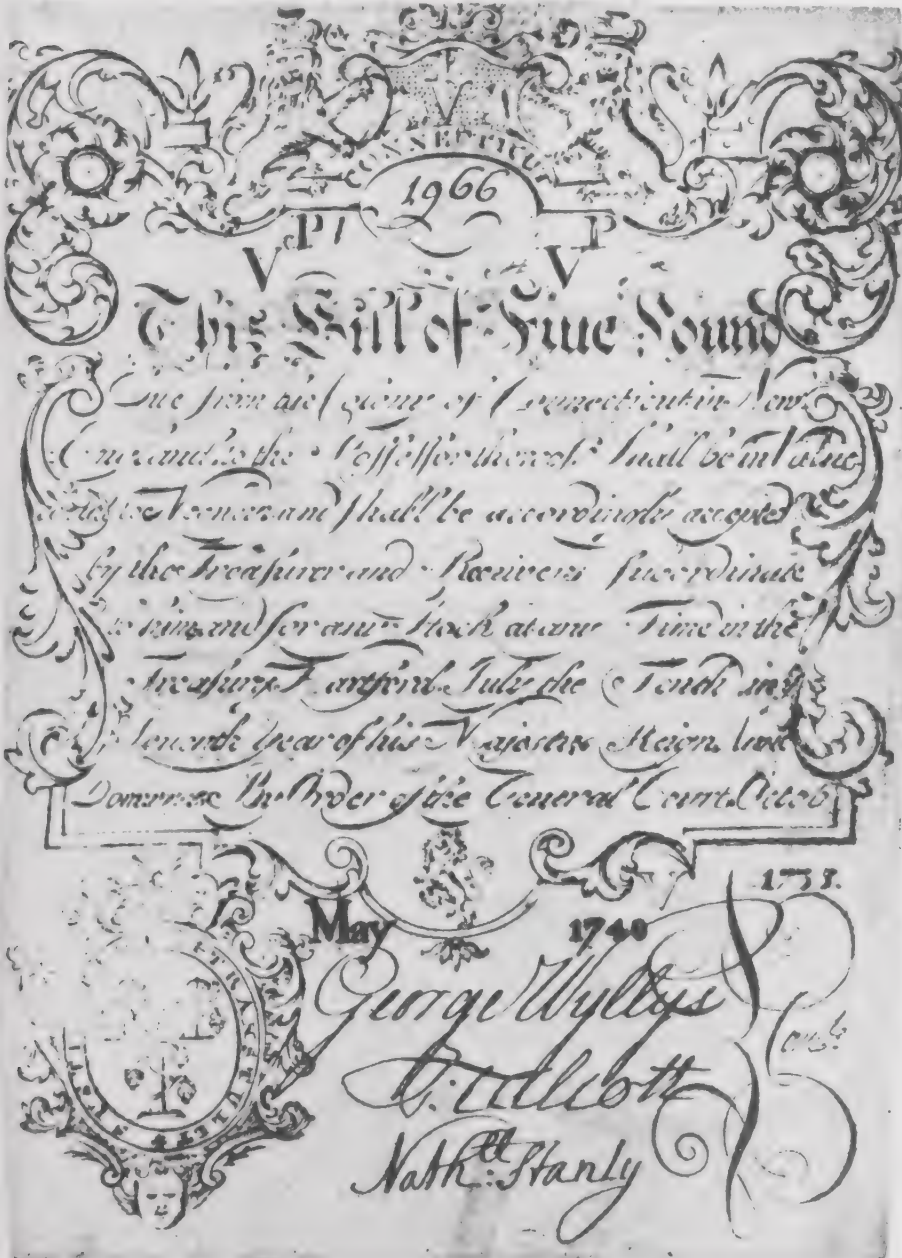 V
CONNECTICU
1966
V P V P
This Bill of Five Pound
Due from the Colony of Connecticut in New
England to the Possessor thereof Shall be in Value
to Money and shall be accordingly accepted
by the Treasurer and Receivers Subordinate
to him and for any Stock at any Time in the
Treasury Hartford July the Tenth in
Seventh Year of his Majesties Reign
By Order of the General Court Octob
1733.
May 1740
George Wyllys
Talcott
Nath:ll Stanly